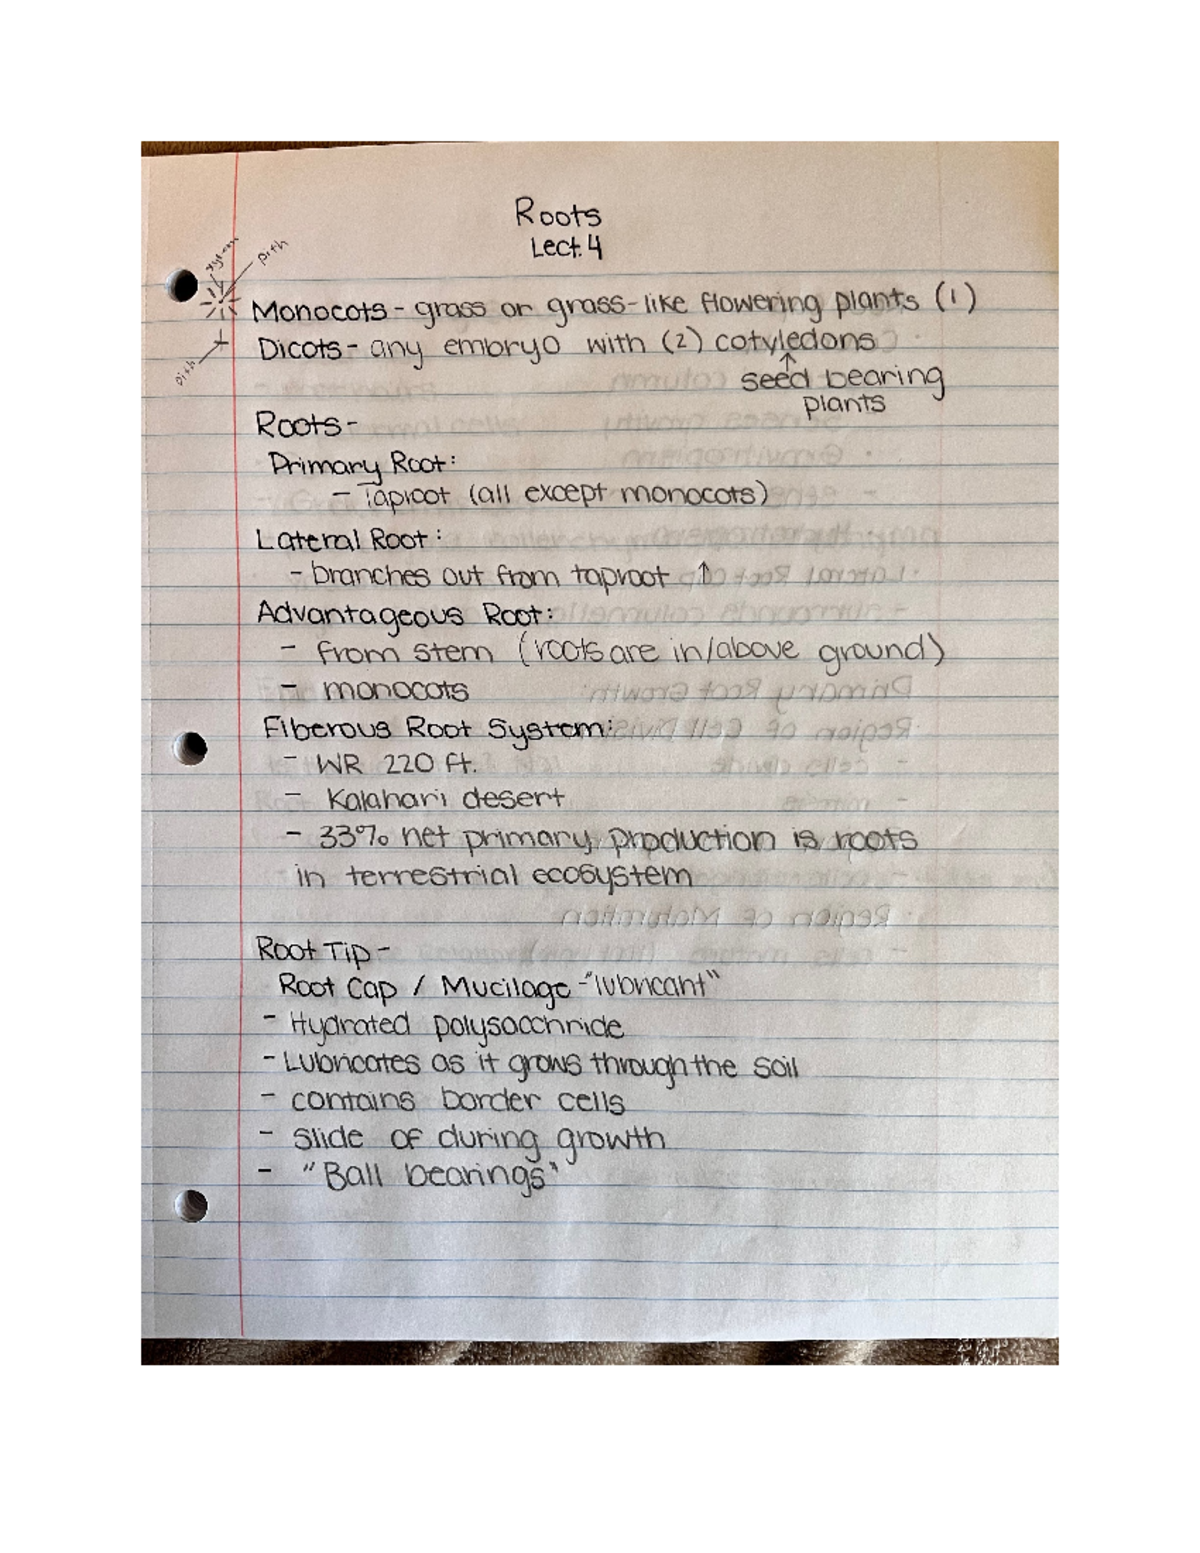 Roots
Lect. 4
xylem pith
Monocots - grass or grass-like flowering plants (1)
Dicots - any embryo with (2) cotyledons
pith
↑
seed bearing
plants
Roots -
Primary Root:
- Taproot (all except monocots)
Lateral Root:
- branches out from taproot ↑
Advantageous Root:
- from stem (roots are in/above ground)
- monocots
Fiberous Root System:
- WR 220 ft.
- Kalahari desert
- 33% net primary production is roots
in terrestrial ecosystem
Root Tip -
Root Cap / Mucilage - "lubricant"
- Hydrated polysacchride
- Lubricates as it grows through the soil
- contains border cells
- slide of during growth
- "Ball bearings"